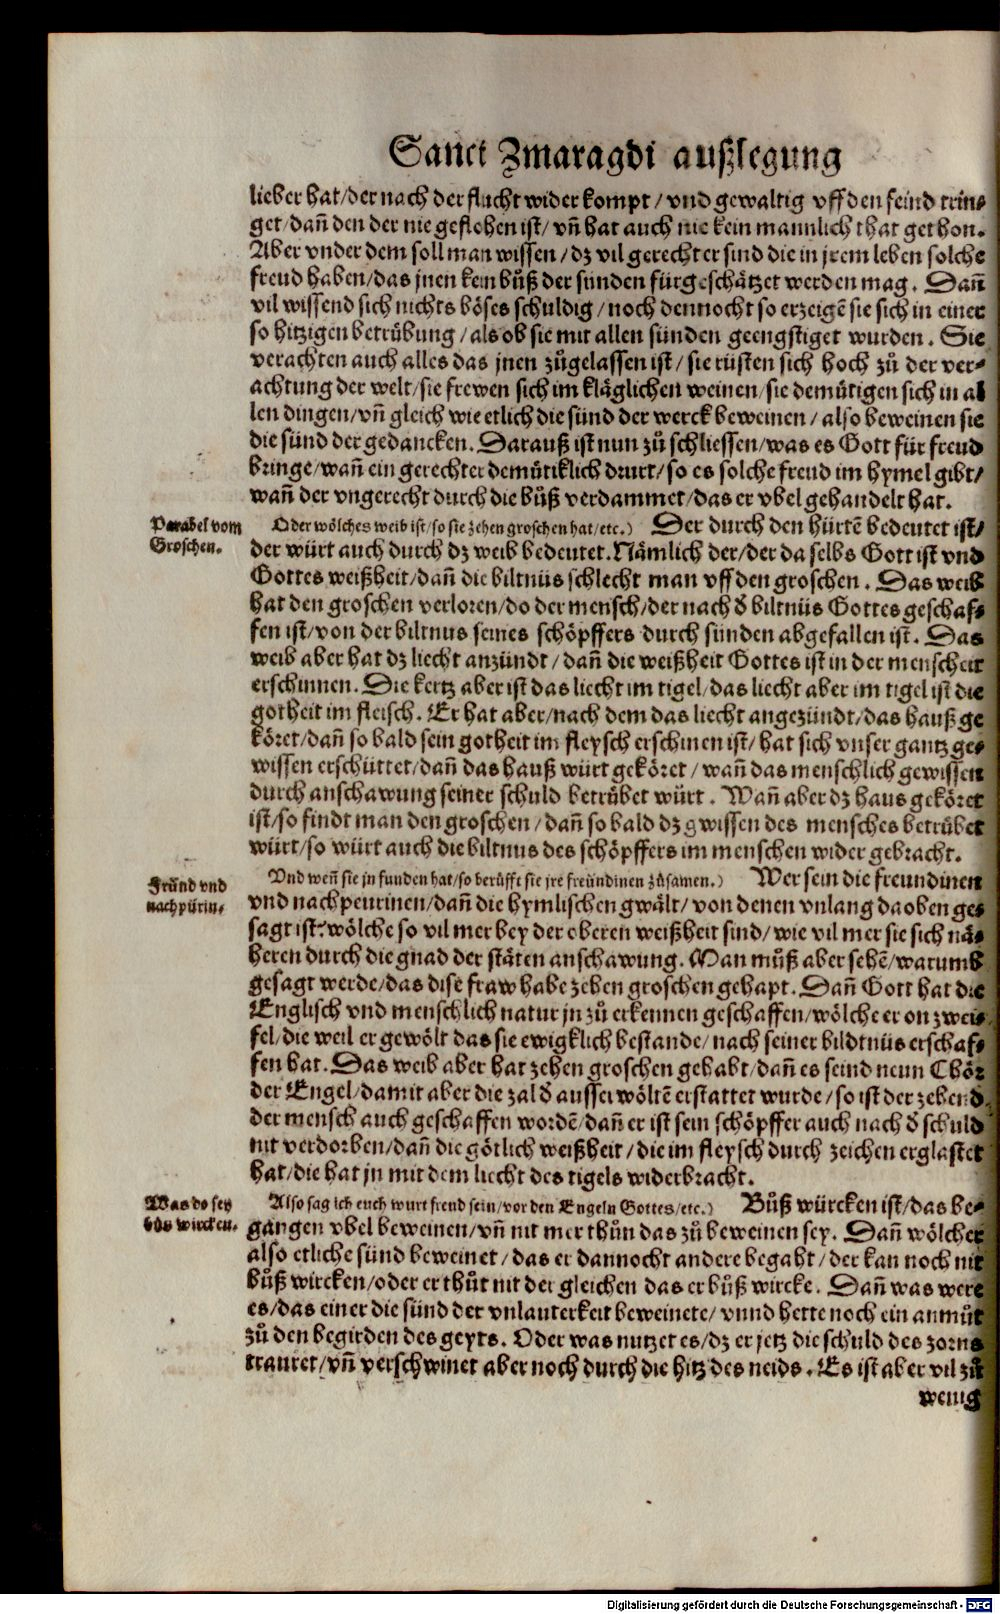 Sanct Zmaragdi außlegung
lieber hat/der nach der flucht wider kompt/ vnd gewaltig vff den feind trin⸗
get/dañ den der nie geflohen ist/ vñ hat auch nie kein mannlich that gethon.
Aber vnder dem soll man wissen/ dz vil gerechter sind die in jrem leben solche
freud haben/das jnen kein bůß der sünden fürgeschätzet werden mag. Dañ
vil wissend sich nichts böses schuldig/ noch dennocht so erzeigē sie sich in einer
so hitzigen betrübung/als ob sie mit allen sünden geengstiget wurden. Sie
verachten auch alles das jnen zůgelassen ist/ sie rüsten sich hoch zů der ver⸗
achtung der welt/sie frewen sich im kläglichen weinen/sie demütigen sich in al
len dingen/vñ gleich wie etlich die sünd der werck beweinen/ also beweinen sie
die sünd der gedancken. Darauß ist nun zů schliessen/was es Gott für freud
bringe/wañ ein gerechter demütiklich trurt/so es solche freud im hymel gibt/
wañ der vngerecht durch die bůß verdammet/das er vbel gehandelt hat.
Parabel vom
Groschen.
Oder wölches weib ist/so sie zehen groschen hat/etc.) Der durch den hürtē bedeutet ist/
der würt auch durch dz weib bedeutet. Nämlich der/der da selbs Gott ist vnd
Gottes weißheit/dañ die biltnüs schlecht man vff den groschen. Das weib
hat den groschen verloren/do der mensch/der nach d̄ biltnüs Gottes geschaf⸗
fen ist/von der biltnus seines schöpffers durch sünden abgefallen ist. Das
weib aber hat dz liecht anzündt/ dañ die weißheit Gottes ist in der menscheit
erschinnen. Die kertz aber ist das liecht im tigel/das liecht aber im tigel ist die
gotheit im fleisch. Er hat aber/nach dem das liecht angezündt/das hauß ge
köret/dañ so bald sein gotheit im fleysch erschinen ist/ hat sich vnser gantz ge⸗
wissen erschüttet/dañ das hauß würt geköret/ wañ das menschlich gewissen
durch anschawung seiner schuld betrübet würt. Wañ aber dz haus geköret
ist/so findt man den groschen/dañ so bald dz gwissen des mensches betrübet
würt/so würt auch die biltnus des schöpffers im menschen wider gebracht.
Fründ vnd
nachpürin⸗
Vnd weñ sie jn funden hat/so berüfft sie jre freündinen zůsamen.) Wer sein die freundinen
vnd nachpeurinen/dañ die hymlischen gwält/ von denen vnlang da oben ge⸗
sagt ist: wölche so vil mer bey der oberen weißheit sind/ wie vil mer sie sich nä⸗
heren durch die gnad der stäten anschawung. Man můß aber sehē/warumb
gesagt werde/das dise fraw habe zehen groschen gehapt. Dañ Gott hat die
Englisch vnd menschlich natur jn zů erkennen geschaffen/wölche er on zwei⸗
fel/die weil er gewölt das sie ewigklich bestande/nach seiner bildtnüs erschaf⸗
fen hat. Das weib aber hat zehen groschen gehabt/dañ es seind neun Chör
der Engel/damit aber die zal d̄ ausserwöltē erstattet wurde/so ist der zehend
der mensch auch geschaffen wordē/dañ er ist sein schöpffer auch nach d̄ schuld
nit verdorben/dañ die götlich weißheit/die im fleysch durch zeichen erglastet
hat/die hat jn mit dem liecht des tigels widerbracht.
Was do sey
bůs wircken.
Also sag ich euch wurt frend sein/vor den Engeln Gottes/etc.) Bůß würcken ist/das be⸗
gangen vbel beweinen/vñ nit mer thůn das zů beweinen sey. Dañ wölcher
also etliche sünd beweinet/das er dannocht andere begaht/der kan noch nit
bůß wircken/oder er thůt nit der gleichen das er bůß wircke. Dañ was were
es/das einer die sünd der vnlauterkeit beweinete/ vnnd hette noch ein anmůt
zů den begirden des geyts. Oder was nutzet es/dz er jetz die schuld des zorns
trauret/vñ verschwinet aber noch durch die hitz des neids. Es ist aber vil zů
wenig
Digitalisierung gefördert durch die Deutsche Forschungsgemeinschaft - DFG